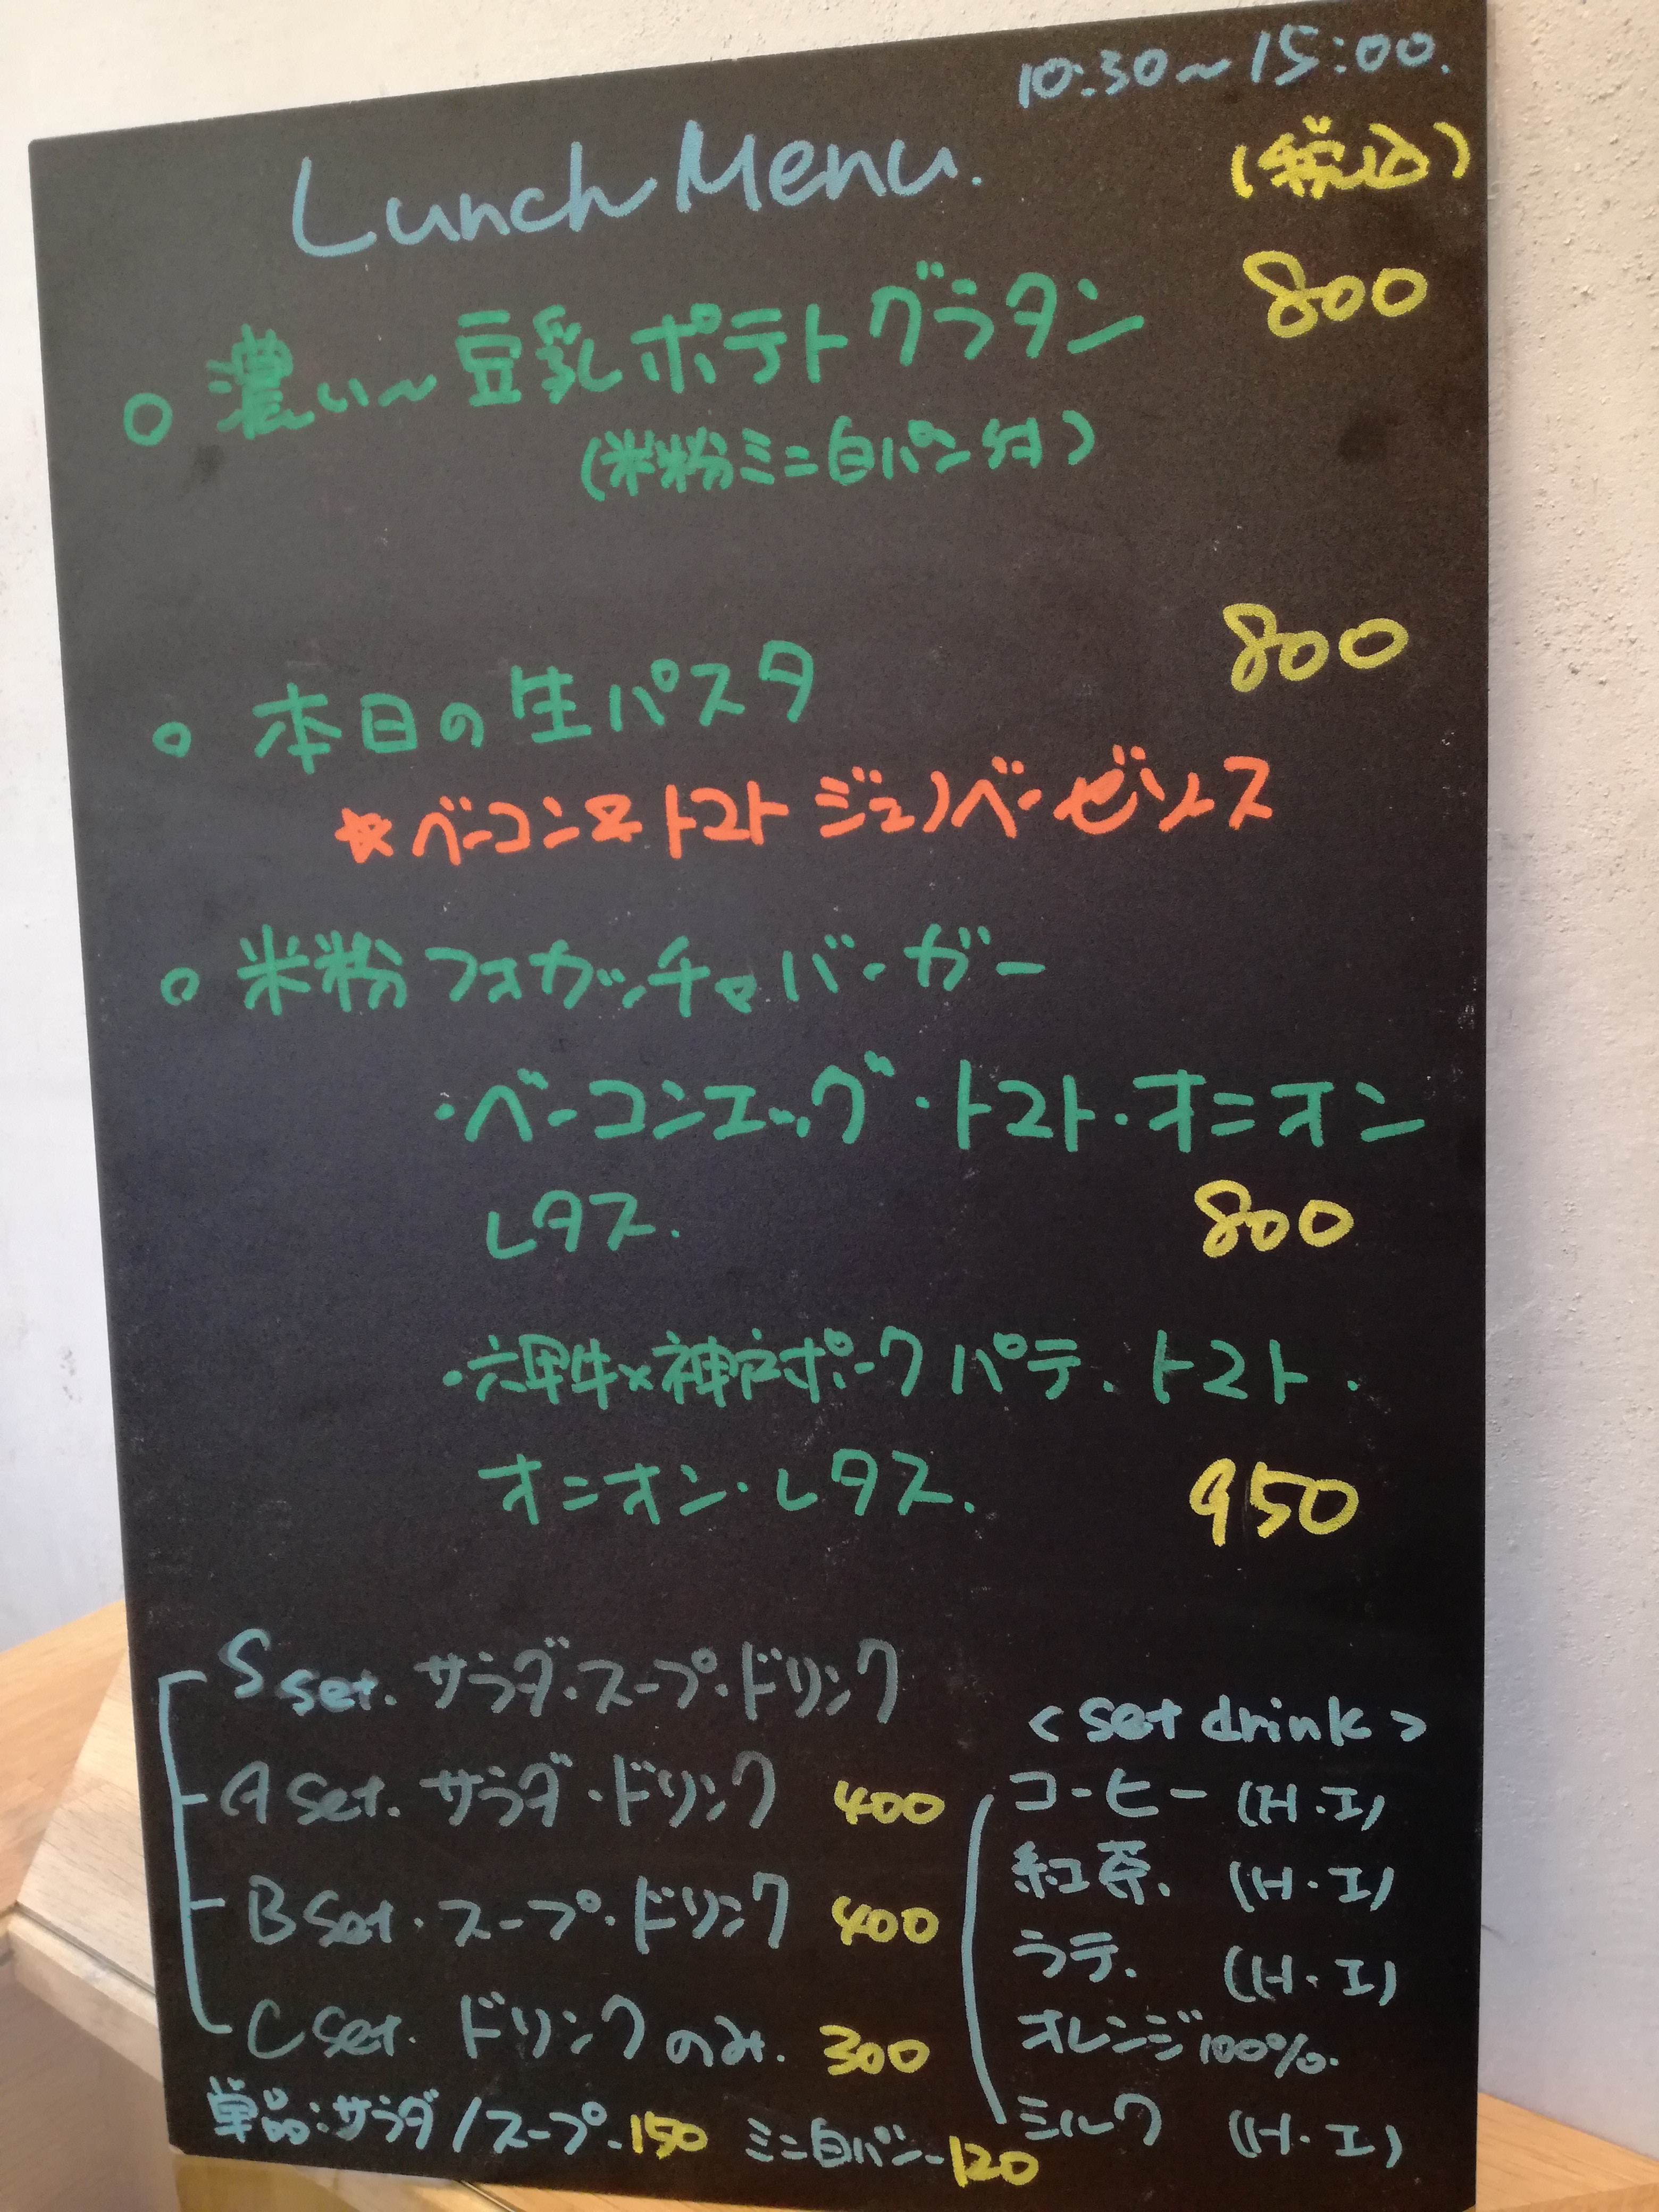 10:30～15:00.
Lunch Menu.
(税込)
○ 濃い～豆乳ポテトグラタン 800
(米粉ミニ白パン付)
○ 本日の生パスタ 800
☆ベーコン&トマト ジェノベーゼソース
○ 米粉フォカッチャバーガー
・ベーコンエッグ・トマト・オニオン
レタス. 800
・六甲牛×神戸ポークパテ.トマト.
オニオン・レタス. 950
S set. サラダ・スープ・ドリンク
A set. サラダ・ドリンク 400
B set・スープ・ドリンク 400
C set. ドリンクのみ. 300
単品:サラダ/スープ-150 ミニ白パン-120
<set drink>
コーヒー (H・I)
紅茶. (H・I)
ラテ. (H・I)
オレンジ100%.
ミルク (H・I)